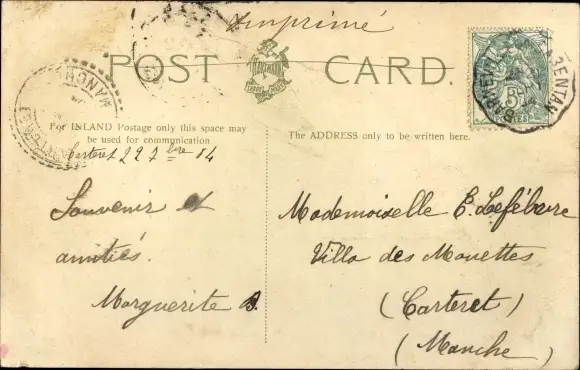 Imprimé
POST CARD.
HARTMANN
MANCHE
BARNEVILLE
CARENTAN
5c
POSTES
For INLAND Postage only this space may
be used for communication
The ADDRESS only to be written here.
Carteret 22 7bre 04
Souvenir et
amitiés.
Marguerite B.
Mademoiselle E. Lefébure
Villa des Mouettes
(Carteret)
(Manche)